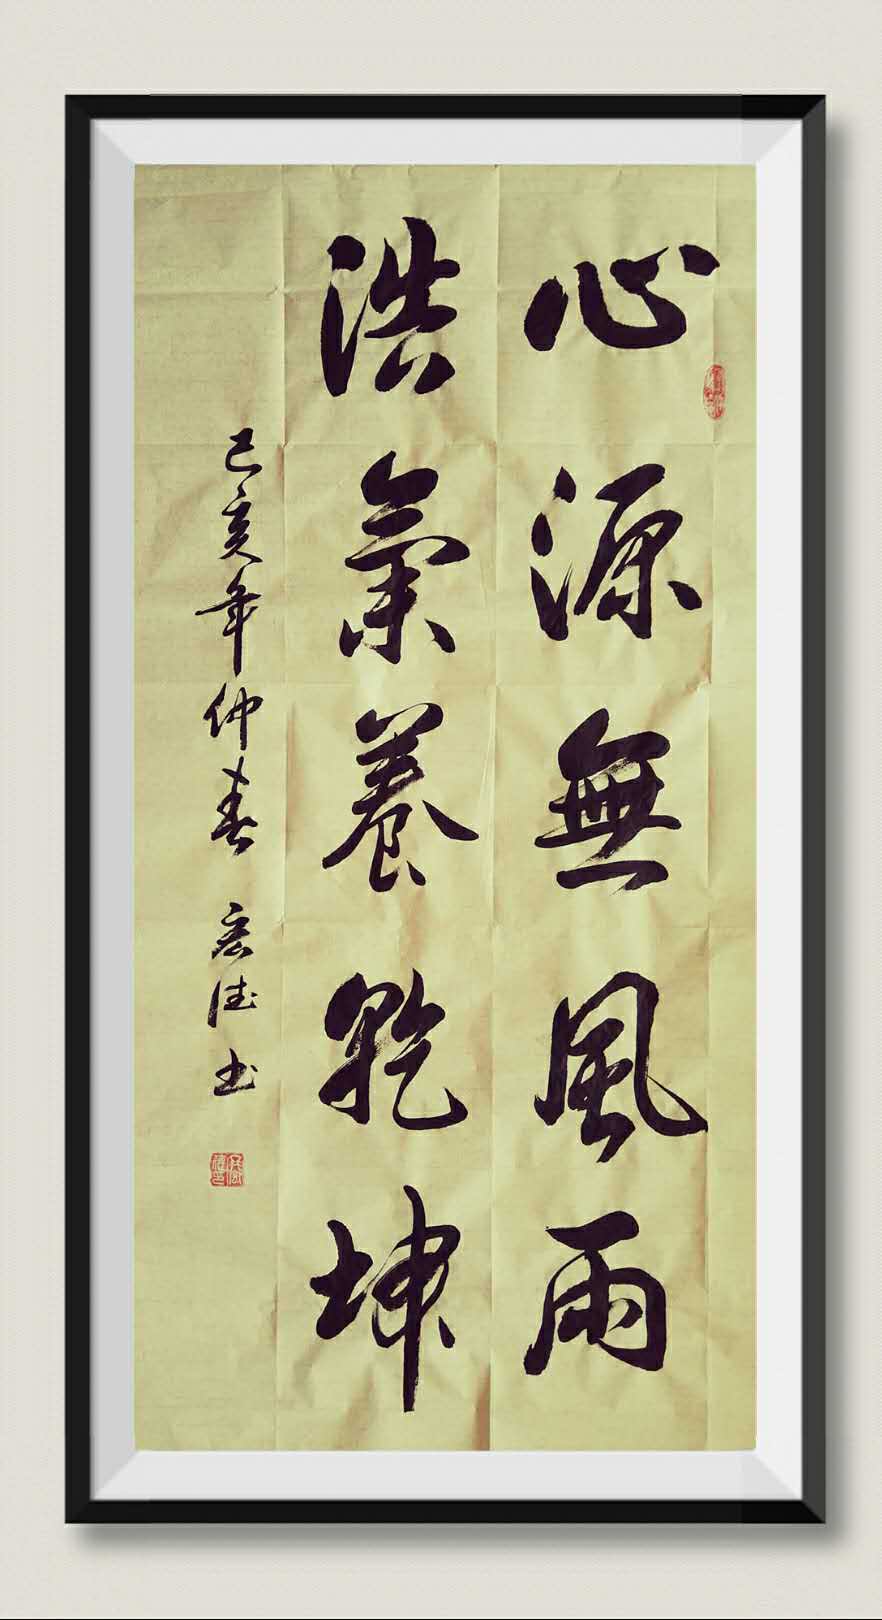 心源無風雨
浩氣養乾坤
己亥年仲春 宏德书